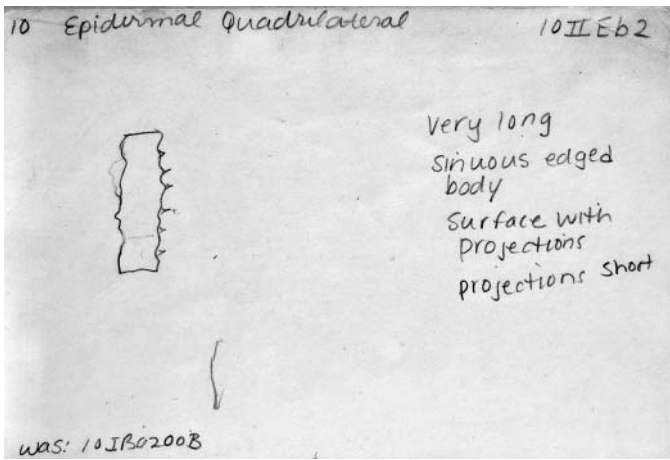 10 Epidermal Quadrilateral 10IIEb2
Very long
sinuous edged
body
surface with
projections
projections short
was: 10IBa200B